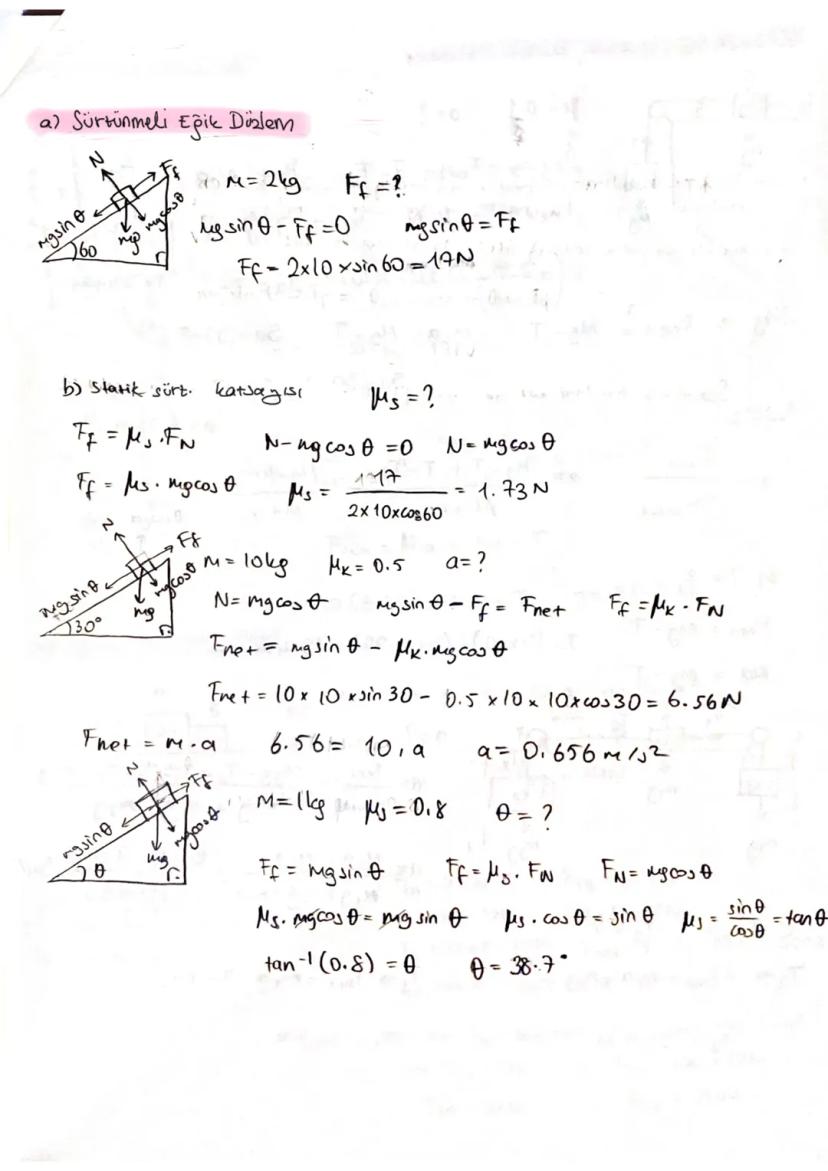 a) Sürtünmeli Eğik Düzlem
N Ff
mgsinθ mg mgcosθ
60
m = 2kg Ff = ?
mgsinθ - Ff = 0 mgsinθ = Ff
Ff = 2x10 x sin 60 = 17N
b) Statik sürt. katsayısı μs = ?
Ff = μs . FN N - mgcosθ = 0 N = mgcosθ
Ff = μs . mgcosθ μs = 17 / 2x10xcos60 = 1.73 N
N Ff
mgsinθ mg mgcosθ
30°
m = 10kg μk = 0.5 a = ?
N = mgcosθ mgsinθ - Ff = Fnet Ff = μk . FN
Fnet = mgsinθ - μk . mgcosθ
Fnet = 10 x 10 x sin 30 - 0.5 x 10 x 10 x cos 30 = 6.56N
Fnet = m . a 6.56 = 10 . a a = 0.656 m/s²
N Ff
mgsinθ mg mgcosθ
θ
m = 1kg μs = 0.8 θ = ?
Ff = mgsinθ Ff = μs . FN FN = mgcosθ
μs . mgcosθ = mgsinθ μs . cosθ = sinθ μs = sinθ / cosθ = tanθ
tan⁻¹(0.8) = θ θ = 38.7°